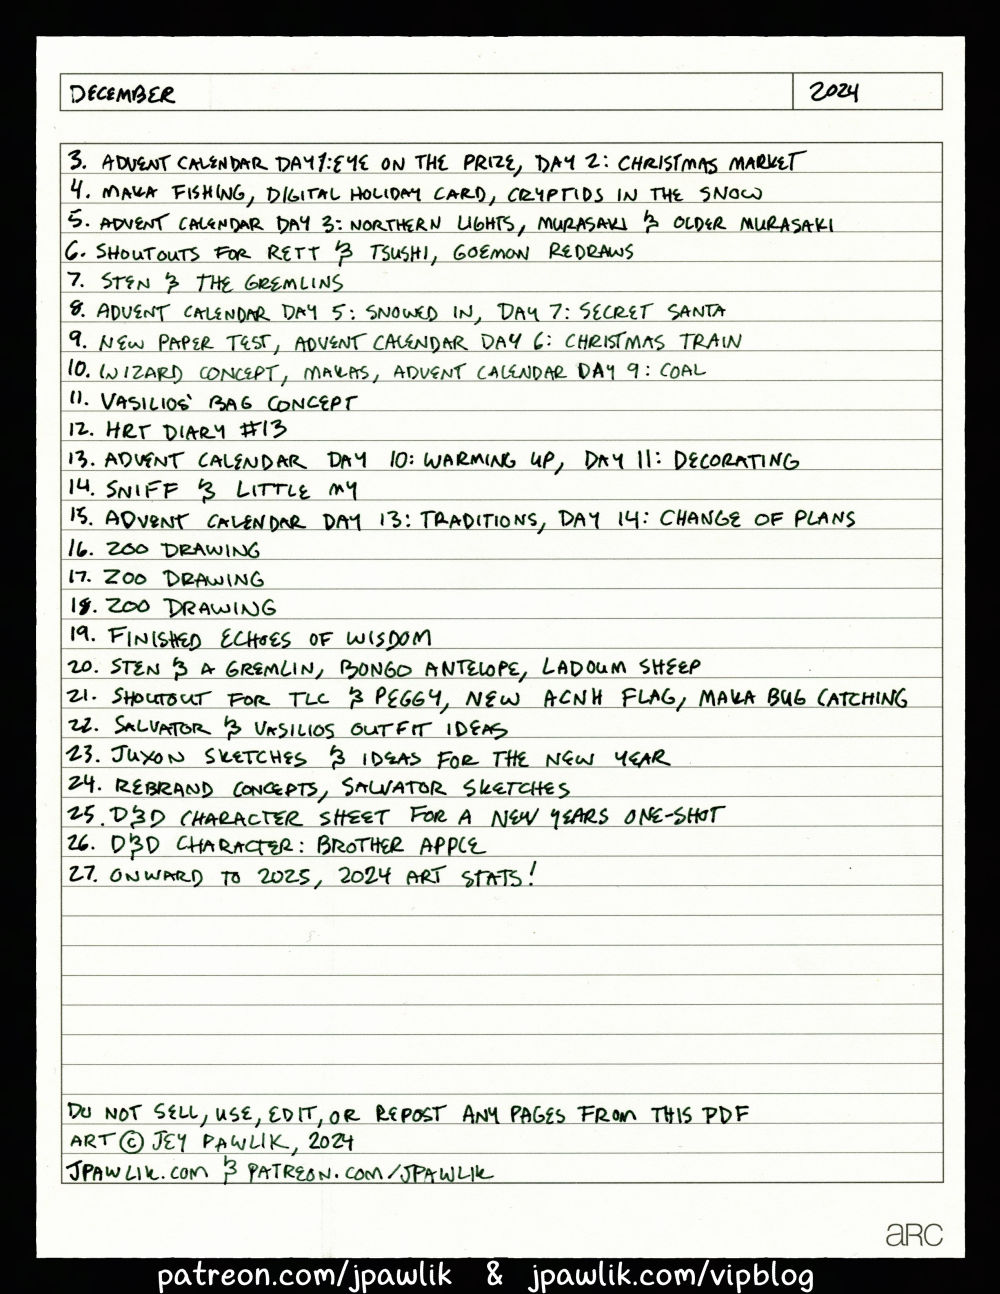 DECEMBER 2024
3. ADVENT CALENDAR DAY 1: EYE ON THE PRIZE, DAY 2: CHRISTMAS MARKET
4. MAKA FISHING, DIGITAL HOLIDAY CARD, CRYPTIDS IN THE SNOW
5. ADVENT CALENDAR DAY 3: NORTHERN LIGHTS, MURASAKI & OLDER MURASAKI
6. SHOUTOUTS FOR RETT & TSUSHI, GOEMON REDRAWS
7. STEN & THE GREMLINS
8. ADVENT CALENDAR DAY 5: SNOWED IN, DAY 7: SECRET SANTA
9. NEW PAPER TEST, ADVENT CALENDAR DAY 6: CHRISTMAS TRAIN
10. WIZARD CONCEPT, MAKAS, ADVENT CALENDAR DAY 9: COAL
11. VASILIOS' BAG CONCEPT
12. HRT DIARY #13
13. ADVENT CALENDAR DAY 10: WARMING UP, DAY 11: DECORATING
14. SNIFF & LITTLE MY
15. ADVENT CALENDAR DAY 13: TRADITIONS, DAY 14: CHANGE OF PLANS
16. ZOO DRAWING
17. ZOO DRAWING
18. ZOO DRAWING
19. FINISHED ECHOES OF WISDOM
20. STEN & A GREMLIN, BONGO ANTELOPE, LADOUM SHEEP
21. SHOUTOUT FOR TLC & PEGGY, NEW ACNH FLAG, MAKA BUG CATCHING
22. SALVATOR & VASILIOS OUTFIT IDEAS
23. JUXON SKETCHES & IDEAS FOR THE NEW YEAR
24. REBRAND CONCEPTS, SALVATOR SKETCHES
25. D&D CHARACTER SHEET FOR A NEW YEARS ONE-SHOT
26. D&D CHARACTER: BROTHER APPLE
27. ONWARD TO 2025, 2024 ART STATS!
DO NOT SELL, USE, EDIT, OR REPOST ANY PAGES FROM THIS PDF
ART © JEY PAWLIK, 2024
JPAWLIK.COM & PATREON.COM/JPAWLIK
aRC
patreon.com/jpawlik & jpawlik.com/vipblog